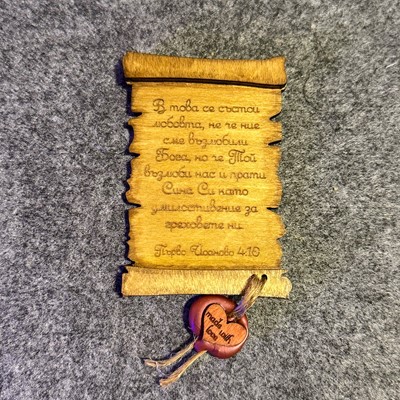 В това се състои
любовта, не че ние
сме възлюбили
Бога, но че Той
възлюби нас и прати
Сина Си като
умилостивение за
греховете ни
Първо Йоаново 4:10
made with
love